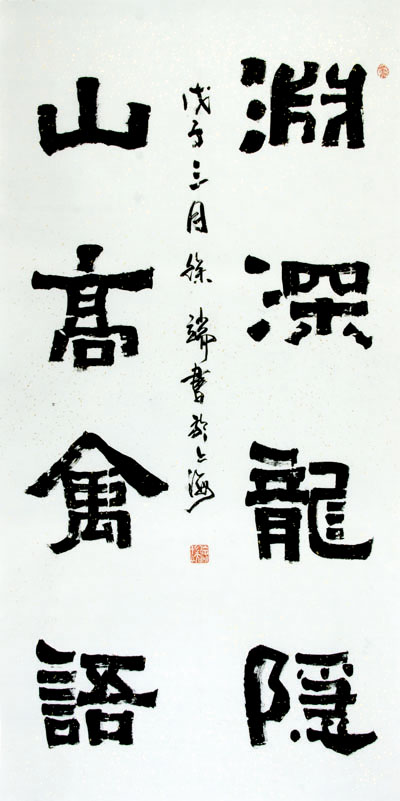 淵深龍隐
山高禽語
戊子三月徐端書於上海